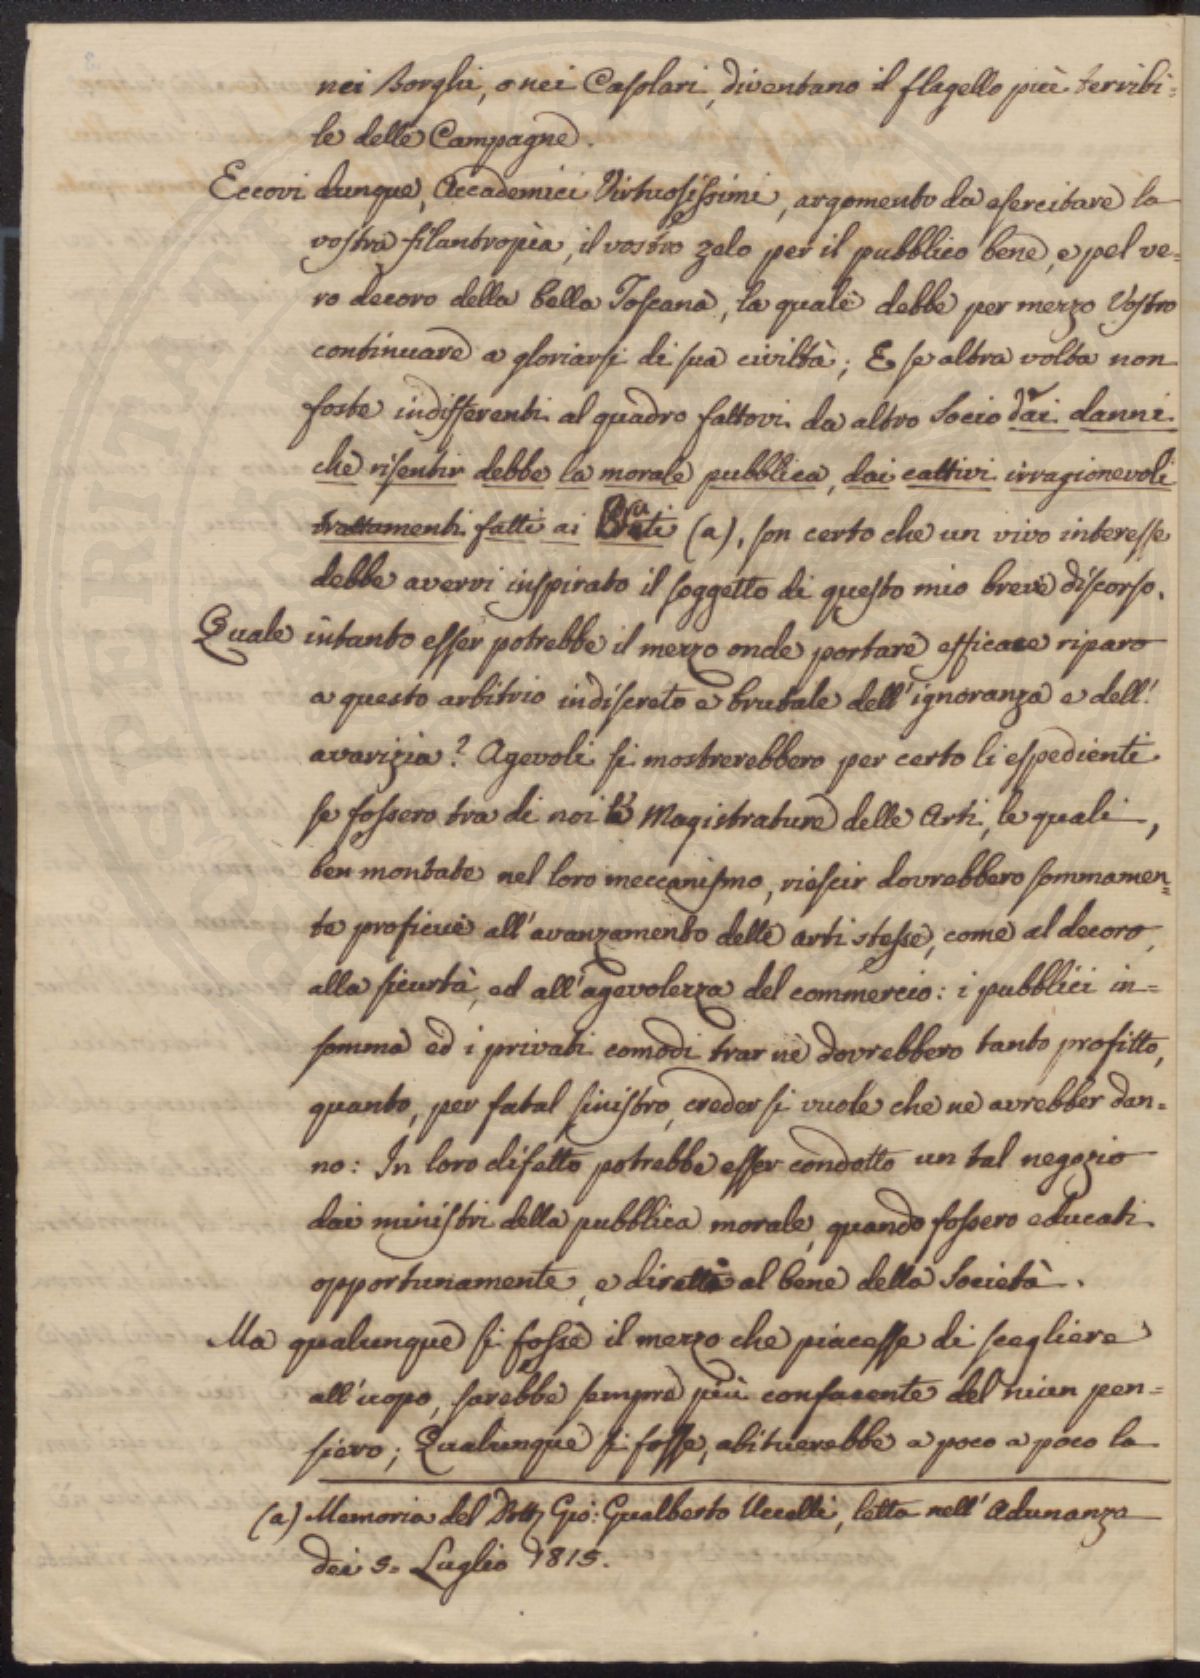 nei Borghi, o nei Casolari, diventano il flagello più terribi=
le delle Campagne.
Eccovi dunque, Accademici Virtuosissimi, argomento da esercitare la
vostra filantropìa, il vostro zelo per il pubblico bene, e pel ve=
ro decoro della bella Toscana, la quale debbe per mezzo Vostro
continuare a gloriarsi di sua civiltà; E se altra volta non
foste indifferenti al quadro fattovi da altro Socio dai danni
che risentir debbe la morale pubblica, dai cattivi irragionevoli
trattamenti fatti ai Bruti (a), son certo che un vivo interesse
debbe avervi inspirato il soggetto di questo mio breve discorso.
Quale intanto esser potrebbe il mezzo onde portare efficace riparo
a questo arbitrio indiscreto e brutale dell'ignoranza e dell'
avarizia? Agevoli si mostrerebbero per certo li espedienti
se fossero tra di noi le Magistrature delle Arti, le quali,
ben montate nel loro meccanismo, riescir dovrebbero sommamen=
te proficue all'avanzamento delle arti stesse, come al decoro,
alla sicurtà, ed all'agevolezza del commercio: i pubblici in=
somma ed i privati comodi trar ne dovrebbero tanto profitto,
quanto, per fatal sinistro, creder si vuole che ne avrebber dan=
no: In loro difetto potrebbe esser condotto un tal negozio
dai ministri della pubblica morale, quando fossero educati
opportunamente, e diretti al bene della Società.
Ma qualunque si fosse il mezzo che piacesse di scegliere
all'uopo, sarebbe sempre più confacente del niun pen=
siero; Qualunque si fosse, abituerebbe a poco a poco la
(a) Memoria del Dott. Gio: Gualberto Uccelli, letta nell'Adunanza
dei 5. Luglio 1815.